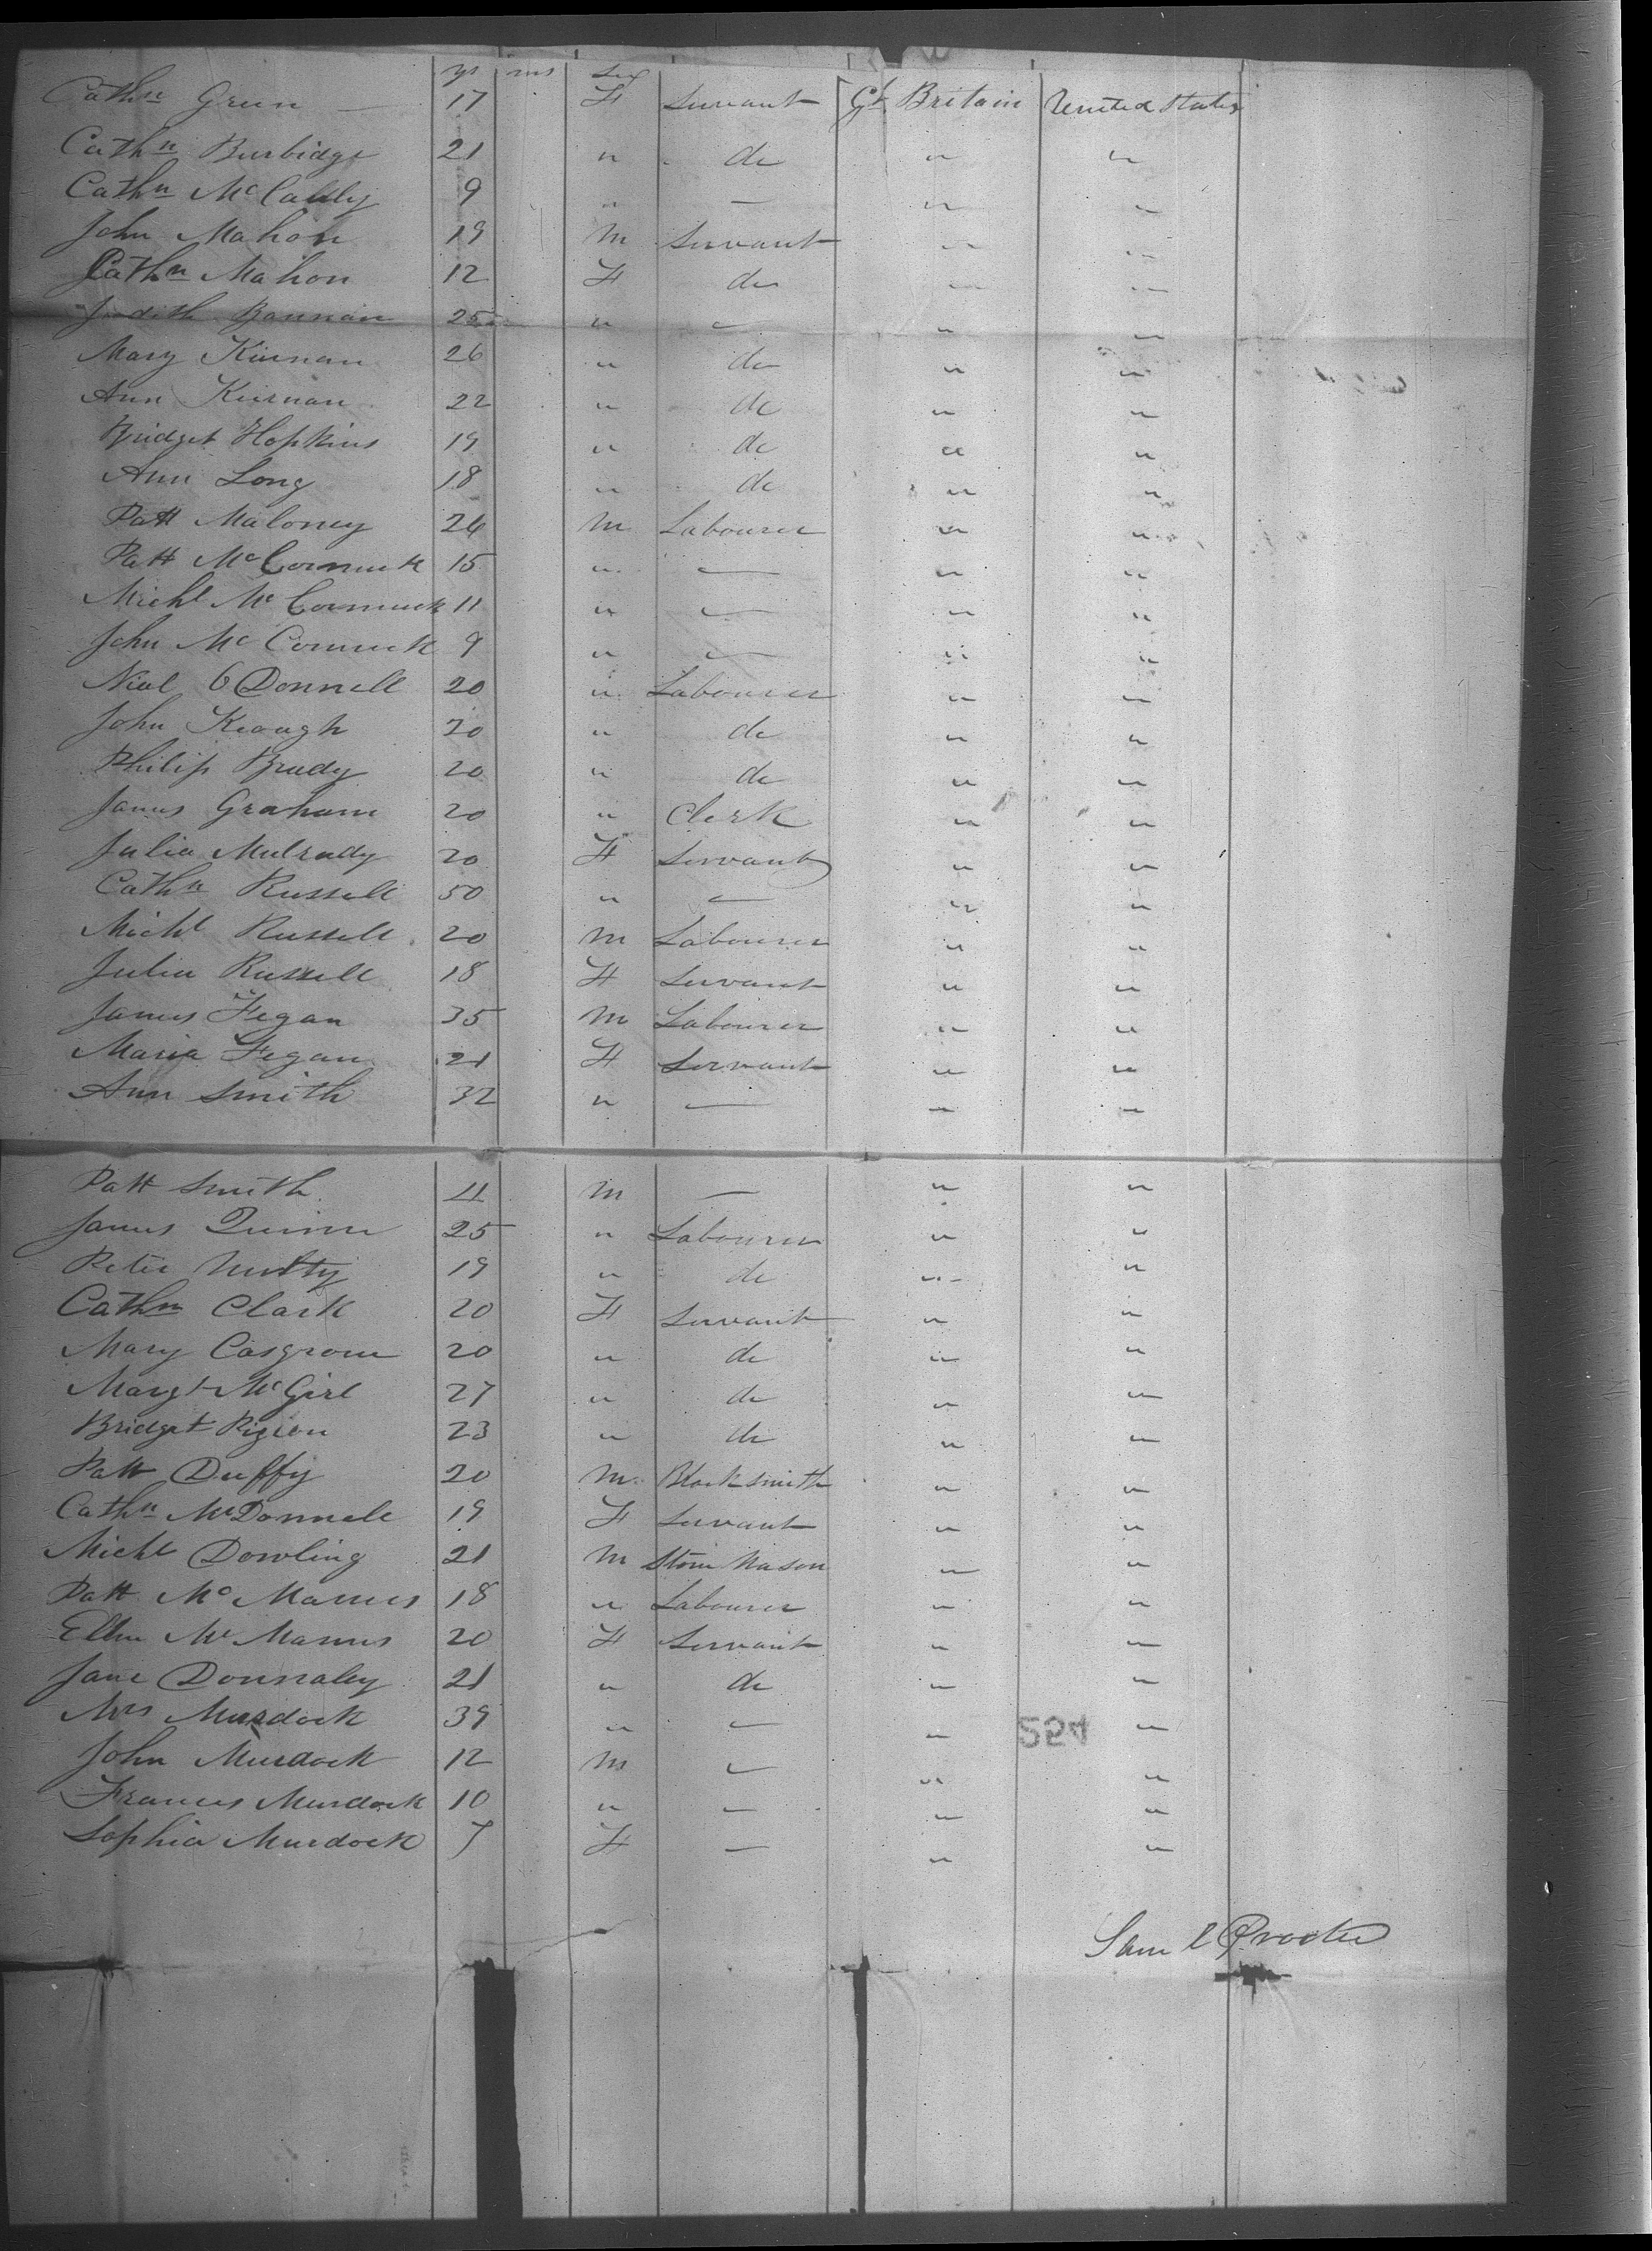 ys ms Sex
Cathn Green — 17 F Servant Gt Britain United States
Cathn Burbidge 21 " do " "
Cathn McCabby 9 " — " "
John Mahon 19 M Servant " "
Cathn Mahon 12 F do " "
Judith Bannan 25 " — " "
Mary Kiernan 26 " do " "
Ann Kiernan 22 " do " "
Bridget Hopkins 19 " do " "
Ann Long 18 " do " "
Patt Maloney 26 M Labourer " "
Patt McCormick 15 " — " "
Michl McCormick 11 " — " "
John McCormick 9 " — " "
Nial O Donnell 20 " Labourer " "
John Keough 20 " do " "
Philip Brady 20 " do " "
James Graham 20 " Clerk " "
Julia Mulrady 20 F Servant " "
Cathn Russell 50 " — " "
Michl Russell 20 M Labourer " "
Julia Russell 18 F Servant " "
James Fegan 35 M Labourer " "
Maria Fegan 21 F Servant " "
Ann Smith 32 " — " "
Patt Smith 11 M — " "
James Quinn 25 " Labourer " "
Peter Nulty 19 " do " "
Cathn Clark 20 F Servant " "
Mary Cosgrove 20 " do " "
Margt McGirl 27 " do " "
Bridget Pigion 23 " do " "
Patt Duffy 20 M Blacksmith " "
Cathn McDonnell 19 F Servant " "
Michl Dowling 21 M Stone Mason " "
Patt McManus 18 " Labourer " "
Ellen McManus 20 F Servant " "
Jane Donnaley 21 " do " "
Mrs Murdock 39 " — " "
John Murdock 12 M — " "
Frances Murdock 10 " — " "
Sophia Murdock 7 F — " "
Saml Procter